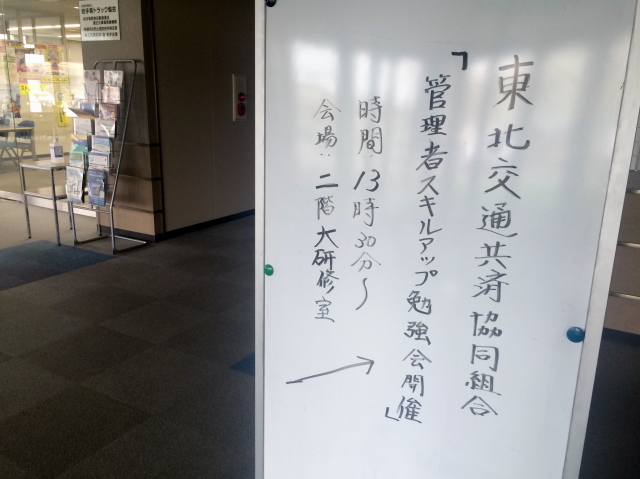 東北交通共済協同組合
「管理者スキルアップ勉強会開催」
時間:13時30分~
会場:二階大研修室